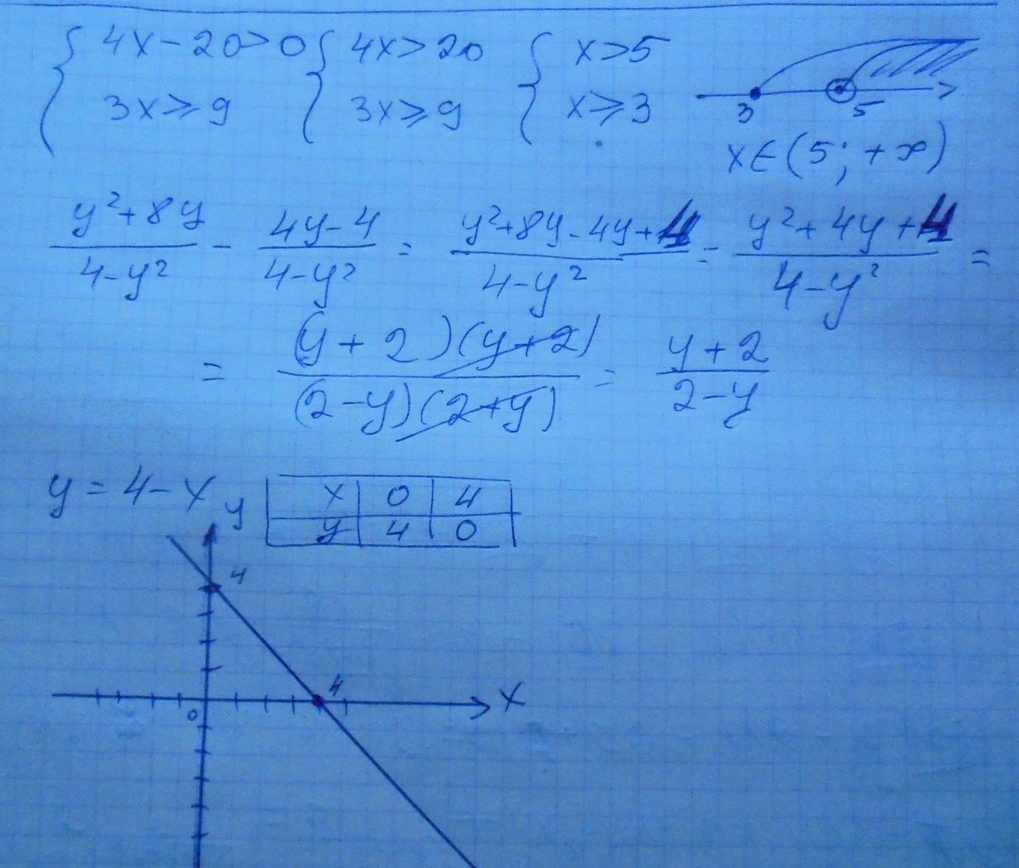 { 4x-20>0 { 4x>20 { x>5
{ 3x⩾9 { 3x⩾9 { x⩾3
3 5
x∈(5; +∞)
(y²+8y)/(4-y²) - (4y-4)/(4-y²) = (y²+8y-4y+4)/(4-y²) = (y²+4y+4)/(4-y²) =
= ((y+2)(y+2))/((2-y)(2+y)) = (y+2)/(2-y)
y = 4-x
x | 0 | 4
y | 4 | 0
y
4
4
x
0